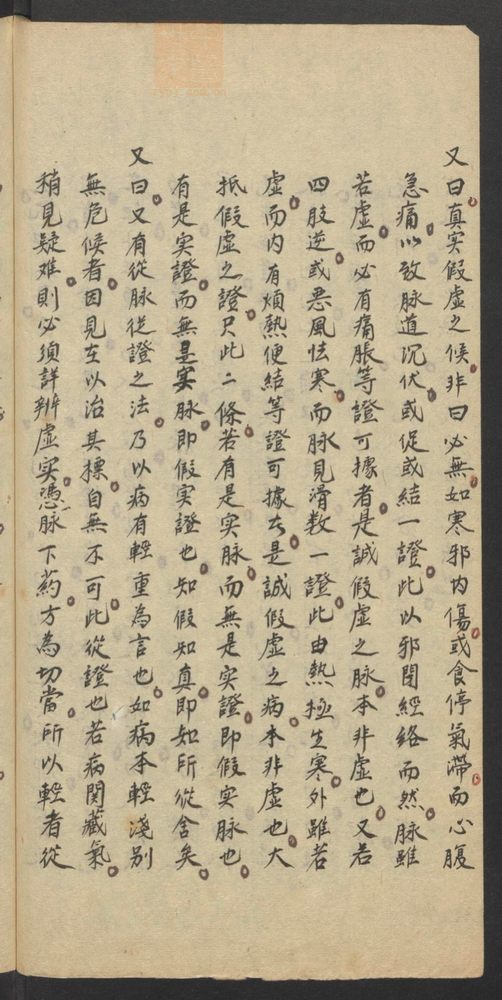 又曰真实假虚之候非曰必無如寒邪内傷或食停氣滯而心腹
急痛以致脉道沉伏或促或結一證此以邪閉經絡而然脉雖
若虚而必有痛脹等證可據者是誠假虚之脉本非虚也又若
四肢逆或恶風怯寒而脉見滑数一證此由熱極生寒外雖若
虚而内有煩熱便結等證可據在是誠假虚之病本非虚也大
抵假虚之證只此二條若有是实脉而無是实證即假实脉也
有是实證而無是实脉即假实證也知假知真即知所從舍矣
又曰又有從脉從證之法乃以病有輕重為言也如病本輕淺别
無危候者因見在以治其標自無不可此從證也若病関藏氣
稍見疑难則必須詳辨虚实憑脉下葯方為切當所以輕者從